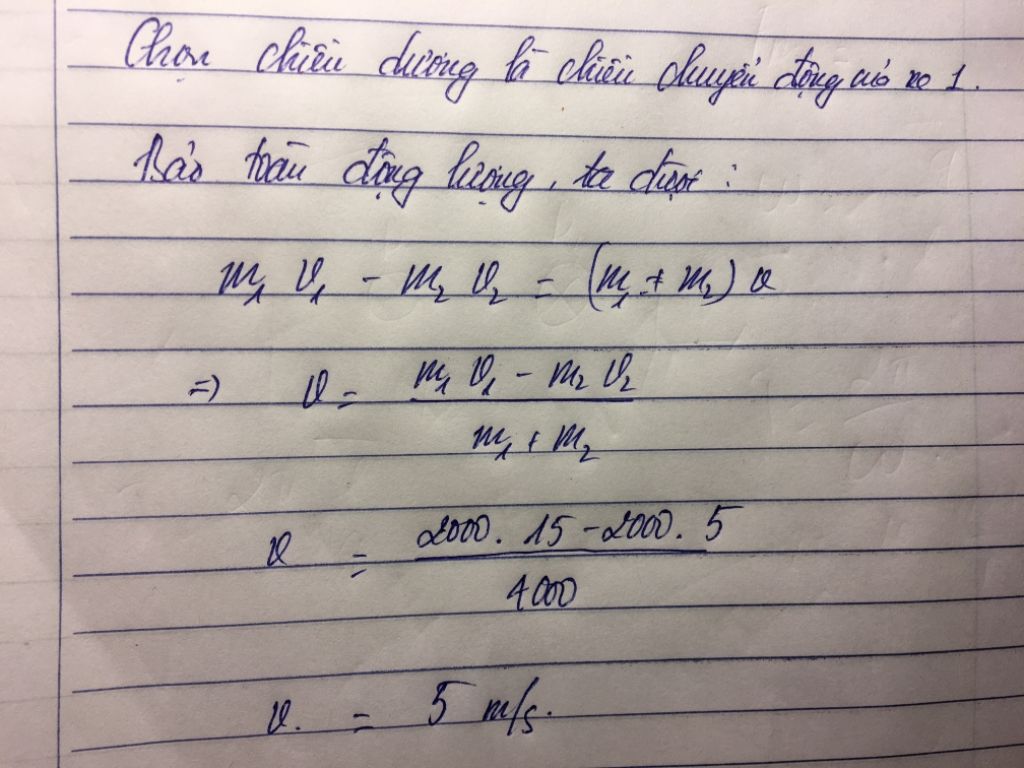 Chọn chiều dương là chiều chuyển động của xe 1.
Bảo toàn động lượng, ta được :
m₁ v₁ - m₂ v₂ = (m₁ + m₂) v
=> v = (m₁ v₁ - m₂ v₂) / (m₁ + m₂)
v = (2000. 15 - 2000. 5) / 4000
v. = 5 m/s.